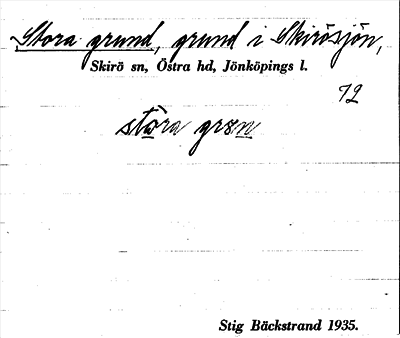 Stora grund, grund i Skirösjön,
Skirö sn, Östra hd, Jönköpings l.
72
stora
Stig Bäckstrand 1935.